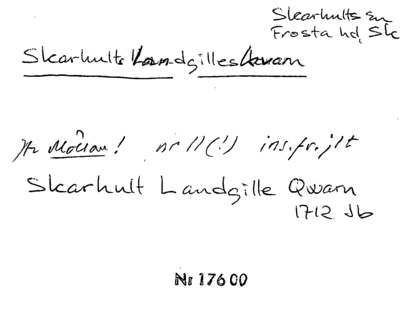 Skarhults sn
Frosta hd, Sk
Skarhults Landgilles kvarn
Möllan! nr 11(!) ins.fr.jlt
Skarhult Landgille Qwarn
1712 Jb
Nr 176 00